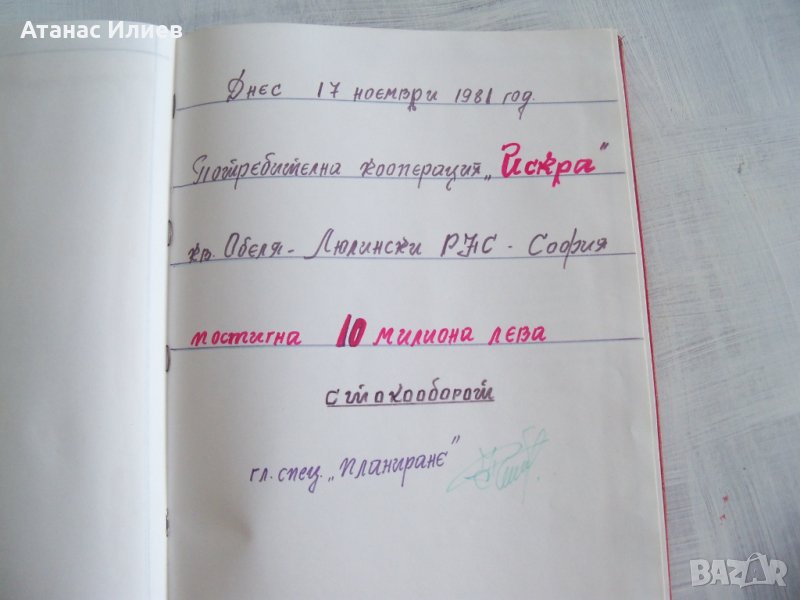 Атанас Илиев
Днес 17 ноември 1981 год.
Потребителна кооперация „Искра"
кв. Обеля - Люлински РНС - София
постигна 10 милиона лева
стокооборот
гл. спец. „Планиране"
BAZAR